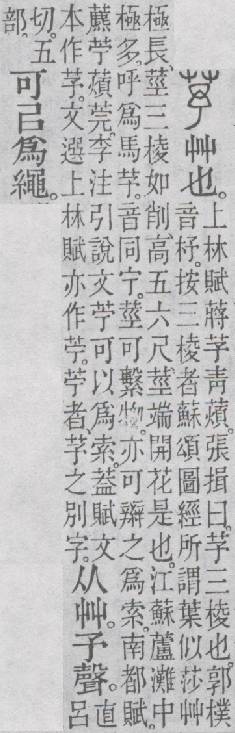 芧 艸也。
上林賦蔣芧青薠。張揖曰。芧、三棱也。郭樸
音杼。按三棱者、蘇頌圖經所謂葉似莎艸
極長、莖三棱如削、高五六尺、莖端開花是也。江蘇蘆灘中
極多。呼爲馬芧。音同宁。莖可繫物。亦可辮之爲索。南都賦
藨苧薠莞。李注引說文苧可以爲索。葢賦文
本作芧。文選上林賦亦作苧。苧者、芧之別字。
从艸。予聲。
直
呂
切。五
部。
可㠯爲繩。